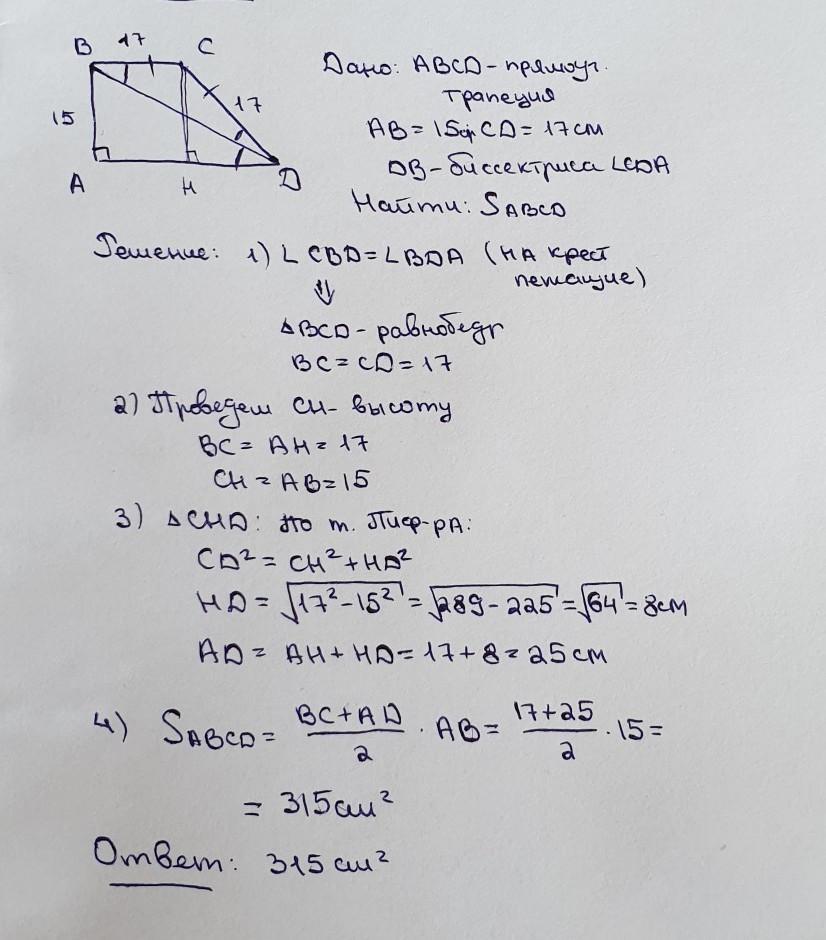 B 17 C
15
17
A H D
Дано: ABCD - прямоуг.
трапеция
AB = 15см CD = 17см
DB - биссектриса ∠CDA
Найти: S ABCD
Решение: 1) ∠CBD = ∠BDA (НА крест
лежащие)
⇓
△BCD - равнобедр
BC = CD = 17
2) Проведем CH - высоту
BC = AH = 17
CH = AB = 15
3) △CHD: по т. Пиф-рА:
CD² = CH² + HD²
HD = √17² - 15² = √289 - 225 = √64 = 8см
AD = AH + HD = 17 + 8 = 25 см
4) S ABCD = BC + AD / 2 · AB = 17 + 25 / 2 · 15 =
= 315 см²
Ответ: 315 см²